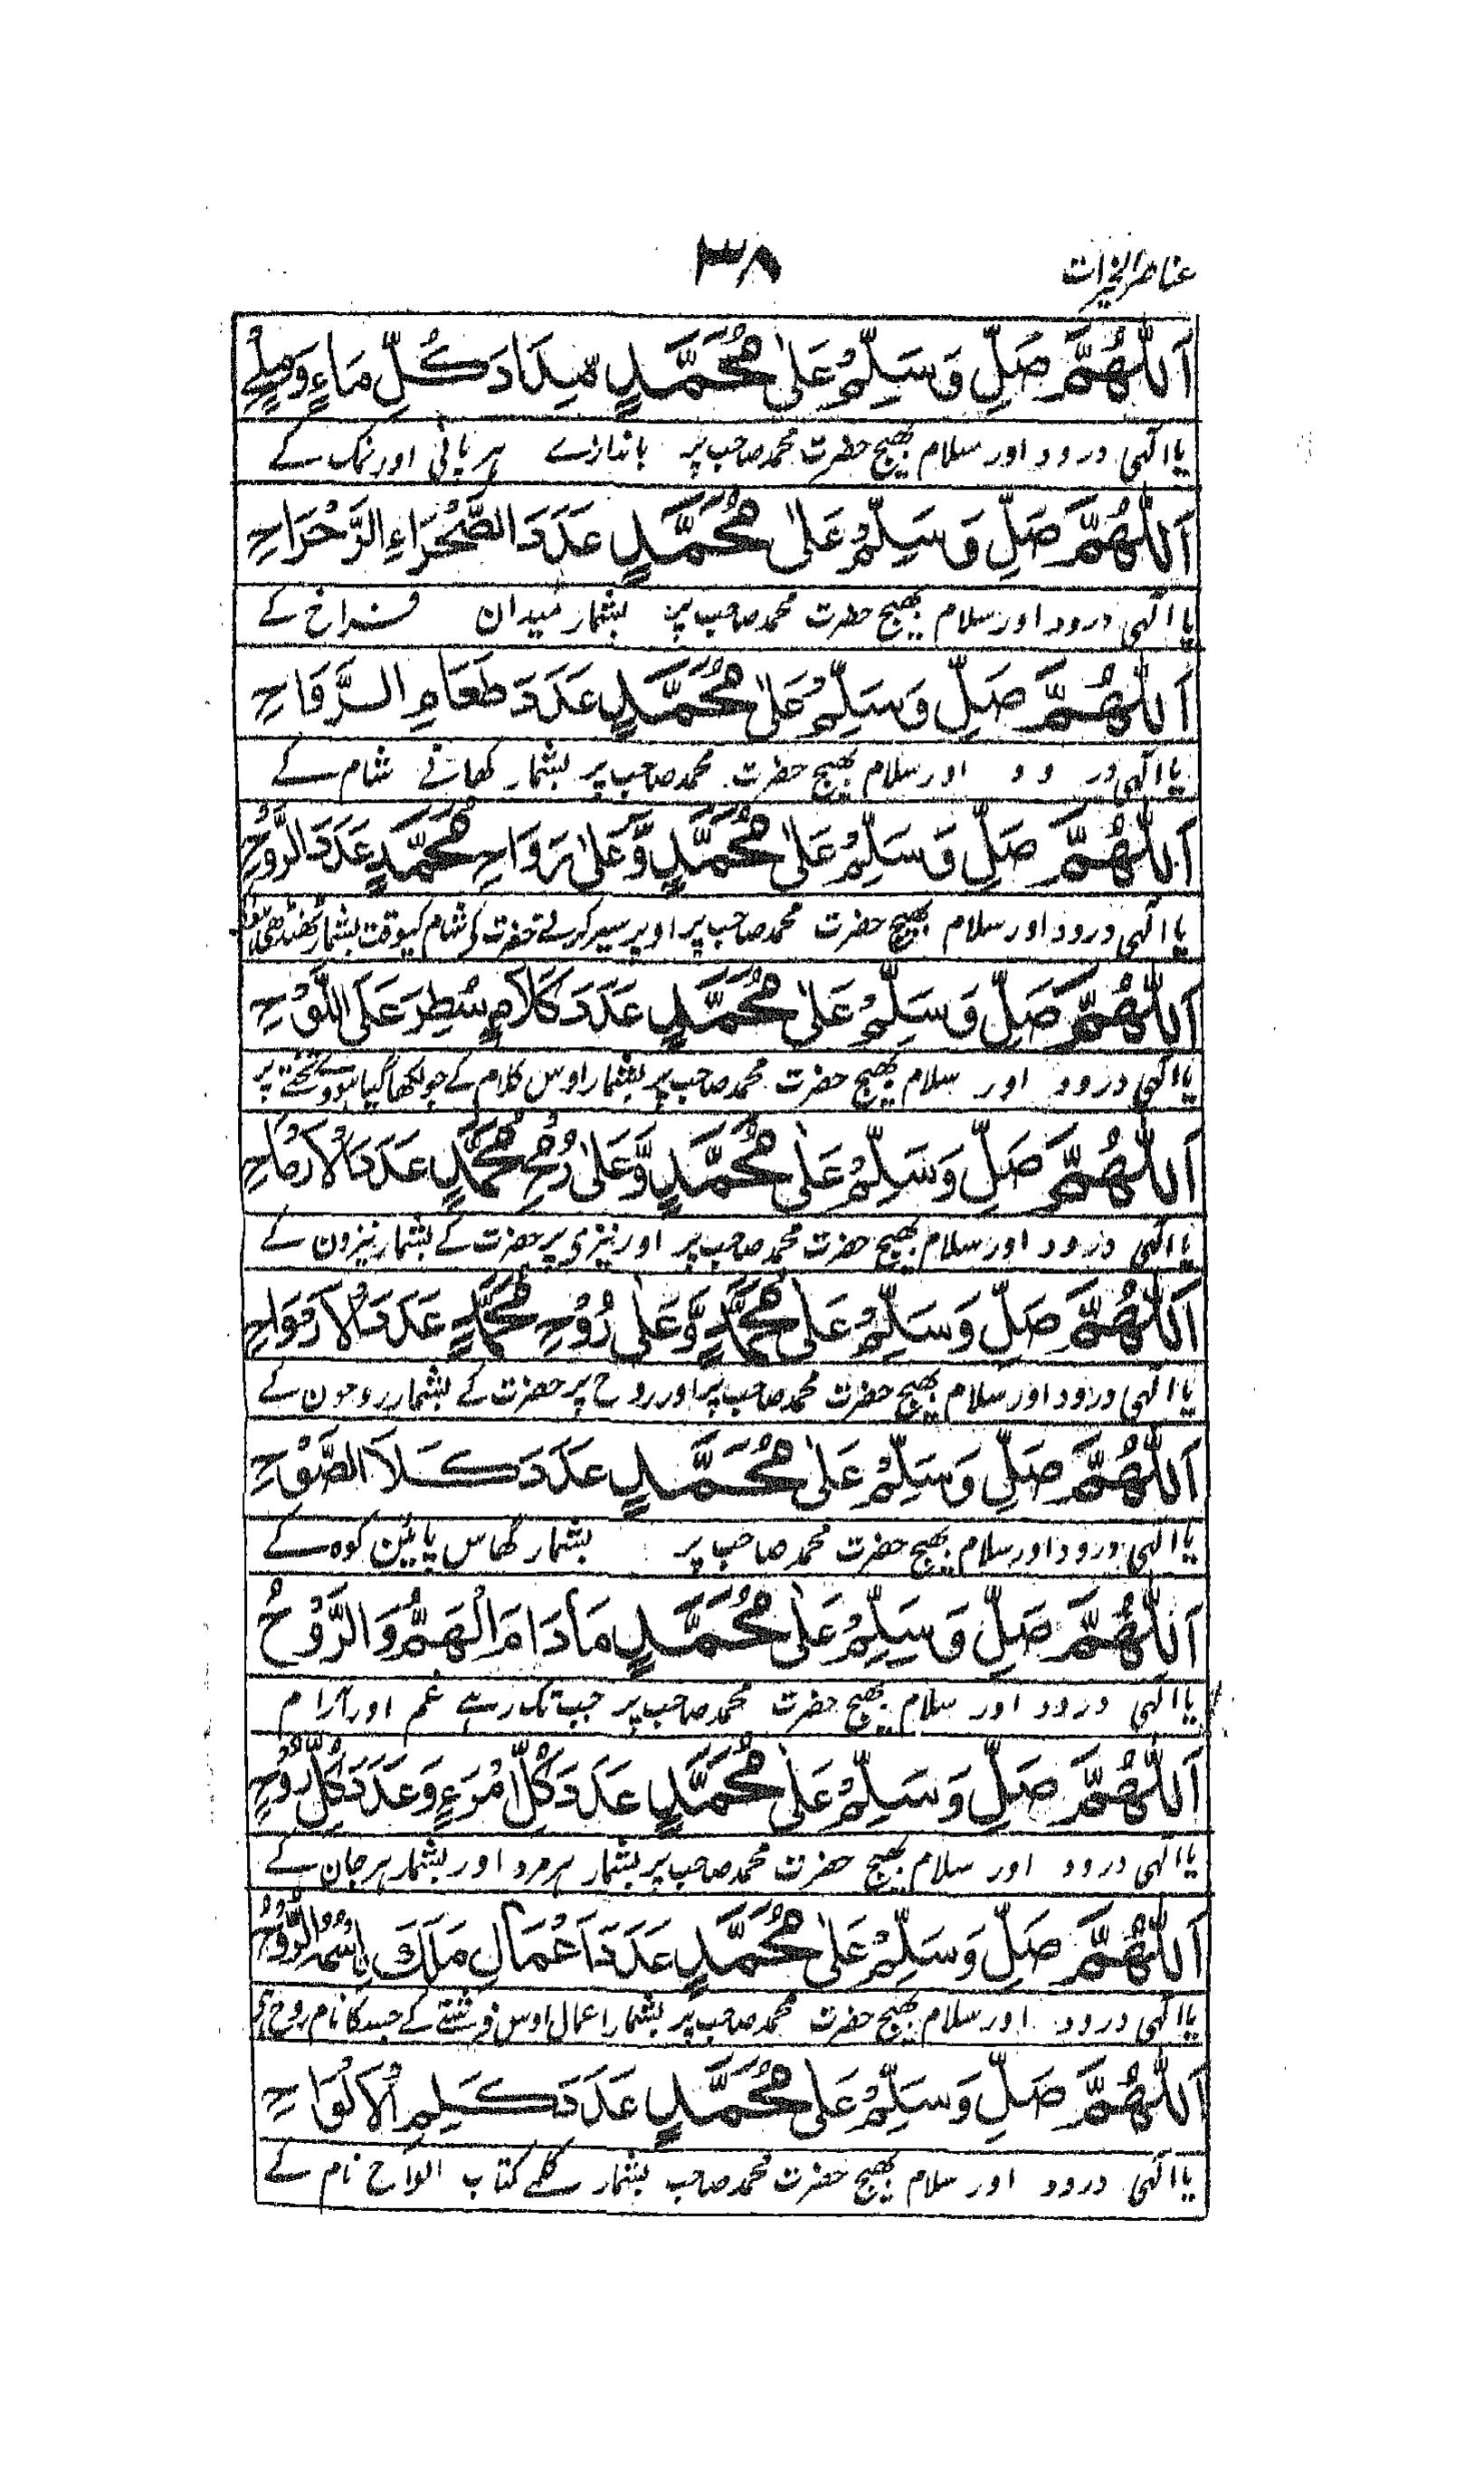 عناصر الخیرات ۳۸
اَللّٰهُمَّ صَلِّ وَسَلِّمْ عَلٰى مُحَمَّدٍ مِّدَادَ كُلِّ مَاءٍ وَمِلْحٍ
یا الٰہی درود اور سلام بھیج حضرت محمد صاحب پر باندازے ہر پانی اور نمک کے
اَللّٰهُمَّ صَلِّ وَسَلِّمْ عَلٰى مُحَمَّدٍ عَدَدَ الصَّحْرَاءِ الرَّحْرَاحِ
یا الٰہی درود اور سلام بھیج حضرت محمد صاحب پر بشمار میدان فراخ کے
اَللّٰهُمَّ صَلِّ وَسَلِّمْ عَلٰى مُحَمَّدٍ عَدَدَ طَعَامِ
یا الٰہی درود اور سلام بھیج حضرت محمد صاحب پر بشمار کھانے شام کے
اَللّٰهُمَّ صَلِّ وَسَلِّمْ عَلٰى مُحَمَّدٍ وَّعَلٰى رَوَاحِ مُحَمَّدٍ عَدَدَ الرَّوْحِ
یا الٰہی درود اور سلام بھیج حضرت محمد صاحب پر اوپر سیر کرنے حضرت کی شام کیوقت بشمار ٹھنڈھی
اَللّٰهُمَّ صَلِّ وَسَلِّمْ عَلٰى مُحَمَّدٍ عَدَدَ كَلَامٍ سُطِرَ عَلَى اللَّوْحِ
یا الٰہی درود اور سلام بھیج حضرت محمد صاحب پر بشمار اوس کلام کے جو لکھا گیا ہووے تختے پر
اَللّٰهُمَّ صَلِّ وَسَلِّمْ عَلٰى مُحَمَّدٍ وَّعَلٰى رُمْحِ مُحَمَّدٍ عَدَدَ الْاَرْمَاحِ
یا الٰہی درود اور سلام بھیج حضرت محمد صاحب پر اور نیزی پر حضرت کے بشمار نیزون کے
اَللّٰهُمَّ صَلِّ وَسَلِّمْ عَلٰى مُحَمَّدٍ وَّعَلٰى رُوْحِ مُحَمَّدٍ عَدَدَ الْاَرْوَاحِ
یا الٰہی درود اور سلام بھیج حضرت محمد صاحب پر اور روح پر حضرت کے بشمار روحون کے
اَللّٰهُمَّ صَلِّ وَسَلِّمْ عَلٰى مُحَمَّدٍ عَدَدَ كَلَاَ الصَّوْحِ
یا الٰہی درود اور سلام بھیج حضرت محمد صاحب پر بشمار گھاس پائین کوہ کے
اَللّٰهُمَّ صَلِّ وَسَلِّمْ عَلٰى مُحَمَّدٍ مَادَامَ الْهَمُّ وَالرَّوْحُ
یا الٰہی درود اور سلام بھیج حضرت محمد صاحب پر جب تک رہے غم اور آرام
اَللّٰهُمَّ صَلِّ وَسَلِّمْ عَلٰى مُحَمَّدٍ عَدَدَ كُلِّ مَرْءٍ وَعَدَدَ كُلِّ رُوْحٍ
یا الٰہی درود اور سلام بھیج حضرت محمد صاحب پر بشمار ہر مرد اور بشمار ہر جان کے
اَللّٰهُمَّ صَلِّ وَسَلِّمْ عَلٰى مُحَمَّدٍ عَدَدَ اَعْمَالِ مَلَكٍ اِسْمُهُ الرُّوْحُ
یا الٰہی درود اور سلام بھیج حضرت محمد صاحب پر بشمار اعمال اوس فرشتے کے جسکا نام روح ہی
اَللّٰهُمَّ صَلِّ وَسَلِّمْ عَلٰى مُحَمَّدٍ عَدَدَ كَلِمِ الْاَلْوَاحِ
یا الٰہی درود اور سلام بھیج حضرت محمد صاحب بشمار کلمے کتاب الواح نام کے